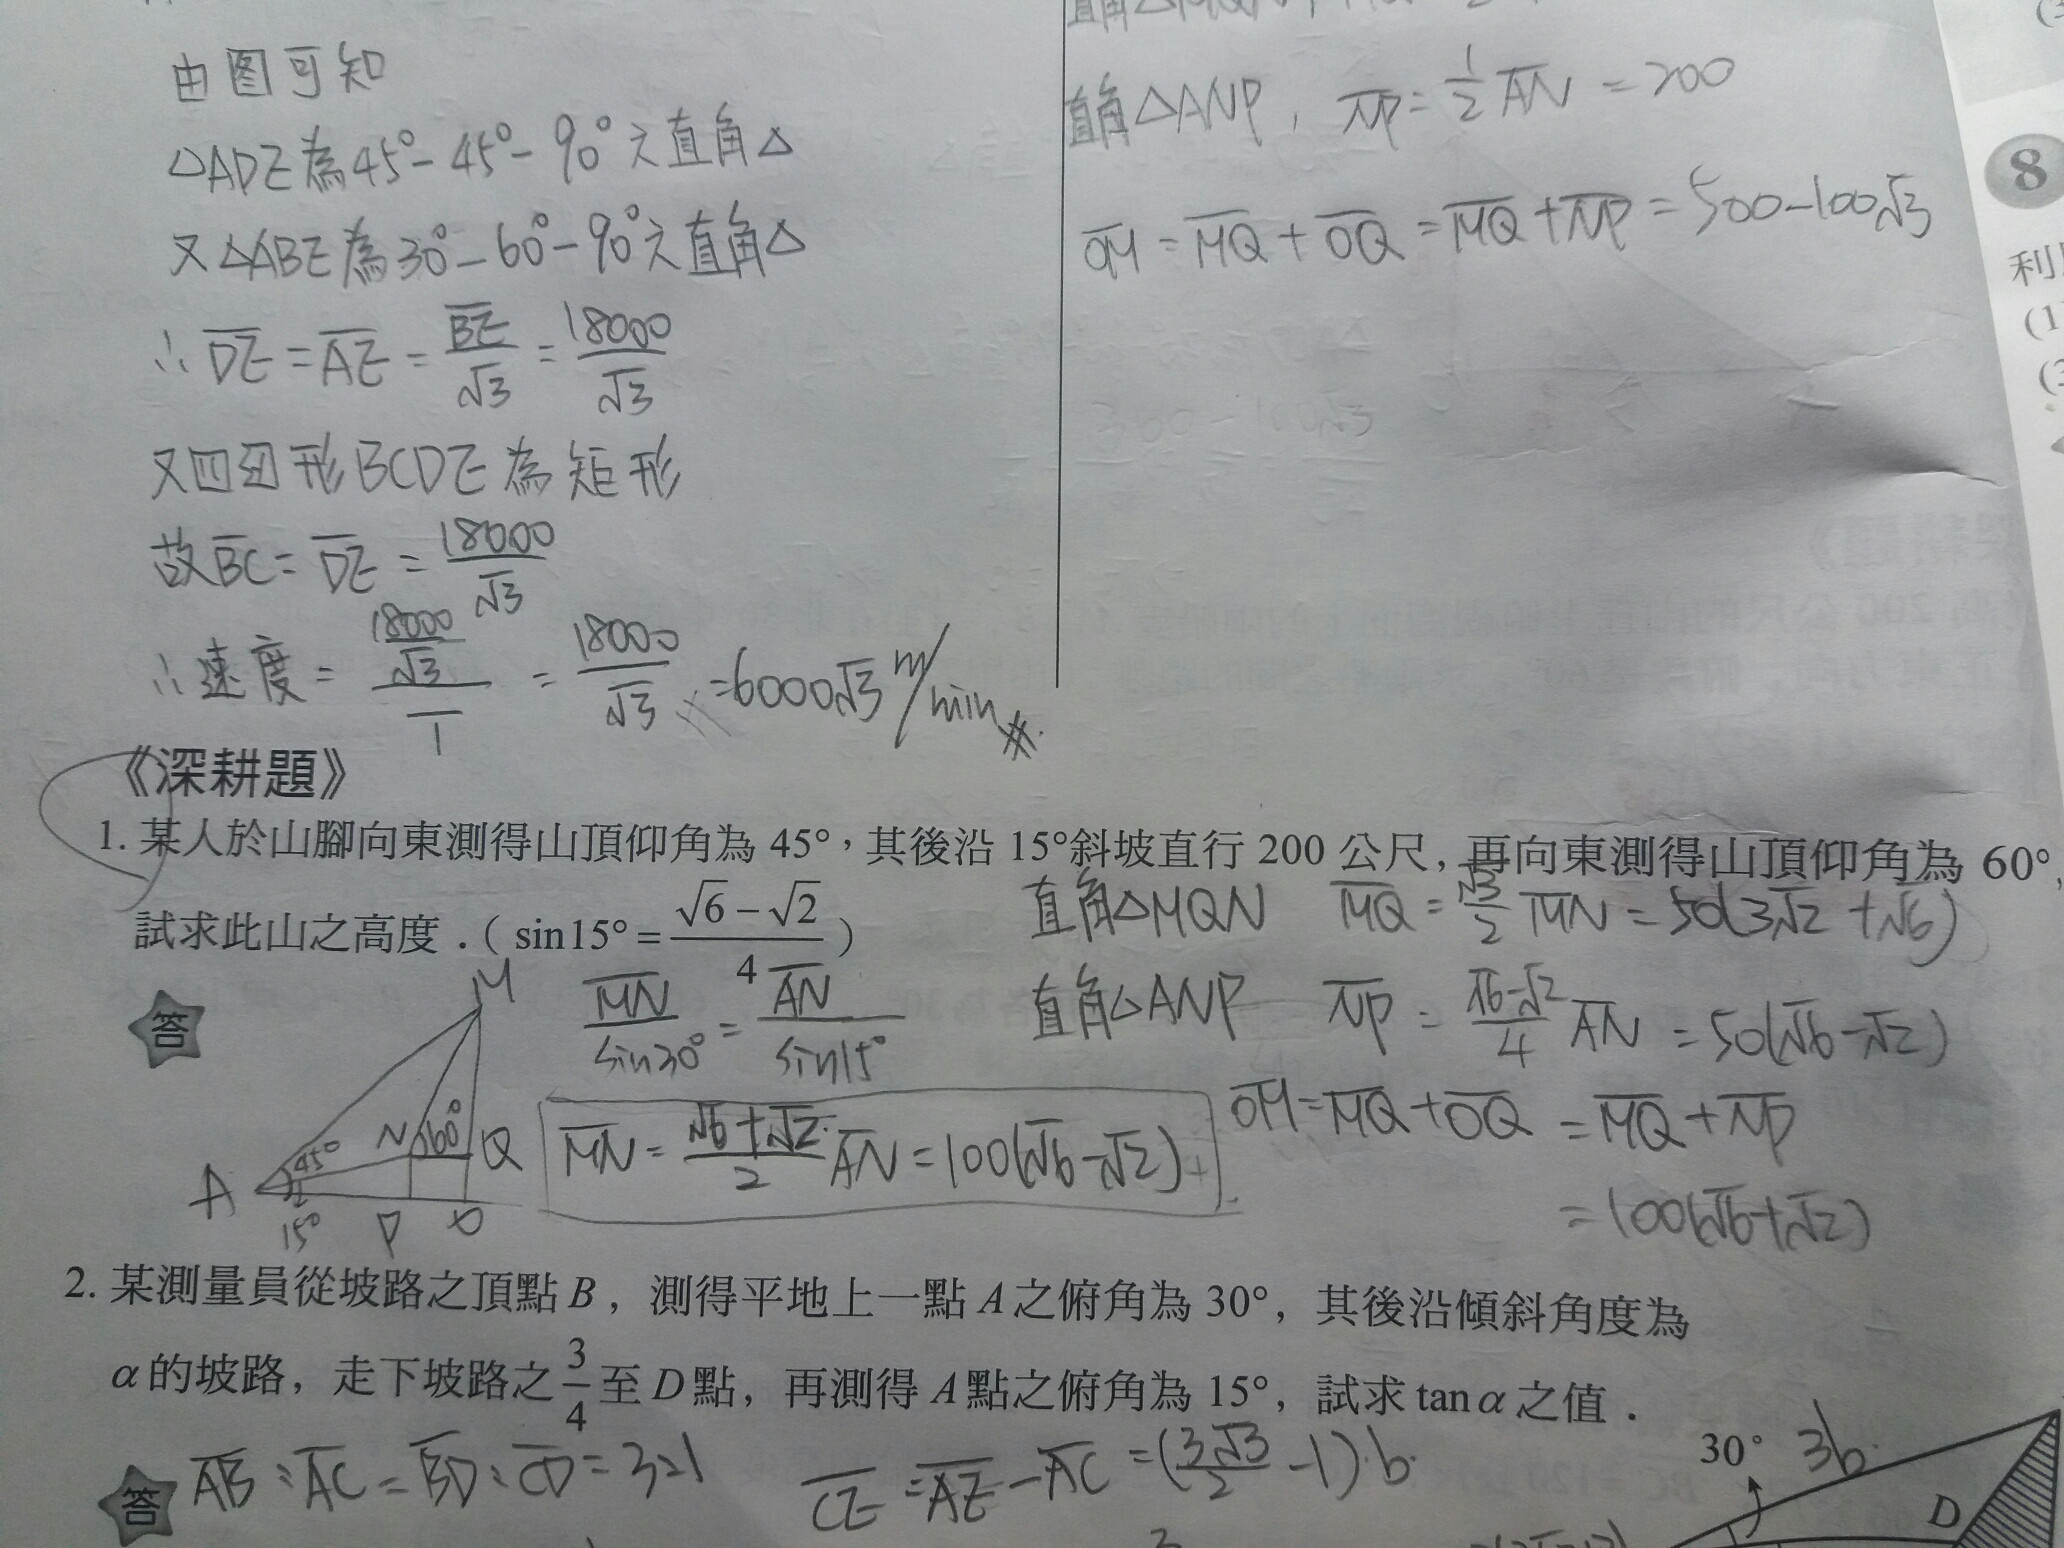 由图可知
△ADE為45°-45°-90°之直角△
又△ABE為30°-60°-90°之直角△
∴DE=AE=BE/√3=18000/√3
又四边形BCDE為矩形
故BC=DE=18000/√3
∴速度=(18000/√3)/1=18000/√3=6000√3 m/min #
直角△ANP, NP=1/2 AN=200
OM=MQ+OQ=MQ+NP=500-100√3
8
利
(1
《深耕題》
1. 某人於山腳向東測得山頂仰角為 45°，其後沿 15°斜坡直行 200 公尺，再向東測得山頂仰角為 60°，
試求此山之高度．( sin15°=(√6-√2)/4 )
答
M
45°
N
60°
Q
A
15°
P
O
MN/sin30°=AN/sin15°
MN=(√6+√2)/2 AN=100(√6-√2)
直角△MQN MQ=√3/2 MN=50(3√2+√6)
直角△ANP NP=(√6-√2)/4 AN=50(√6-√2)
OM=MQ+OQ=MQ+NP
=100(√6+√2)
2. 某測量員從坡路之頂點 B，測得平地上一點 A 之俯角為 30°，其後沿傾斜角度為
α 的坡路，走下坡路之 3/4 至 D 點，再測得 A 點之俯角為 15°，試求 tanα 之值．
答
AB:AC=BD:CD=3:1
CE=AE-AC=(3√3/2-1)·b
30°
3b
D